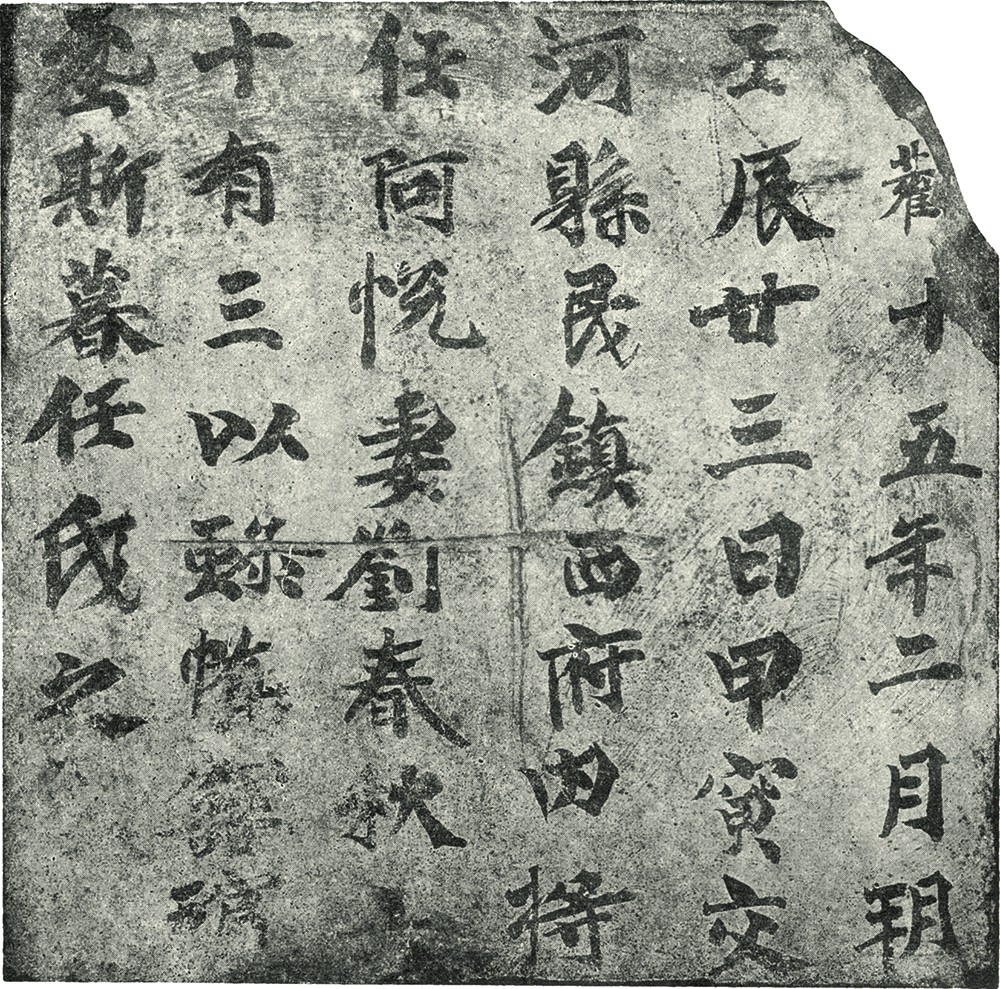 十五年二月朔
壬辰廿三日甲寅交
河縣民鎮西府内將
任阿悅妻劉春秋
十有三以
塟斯暮任氏之